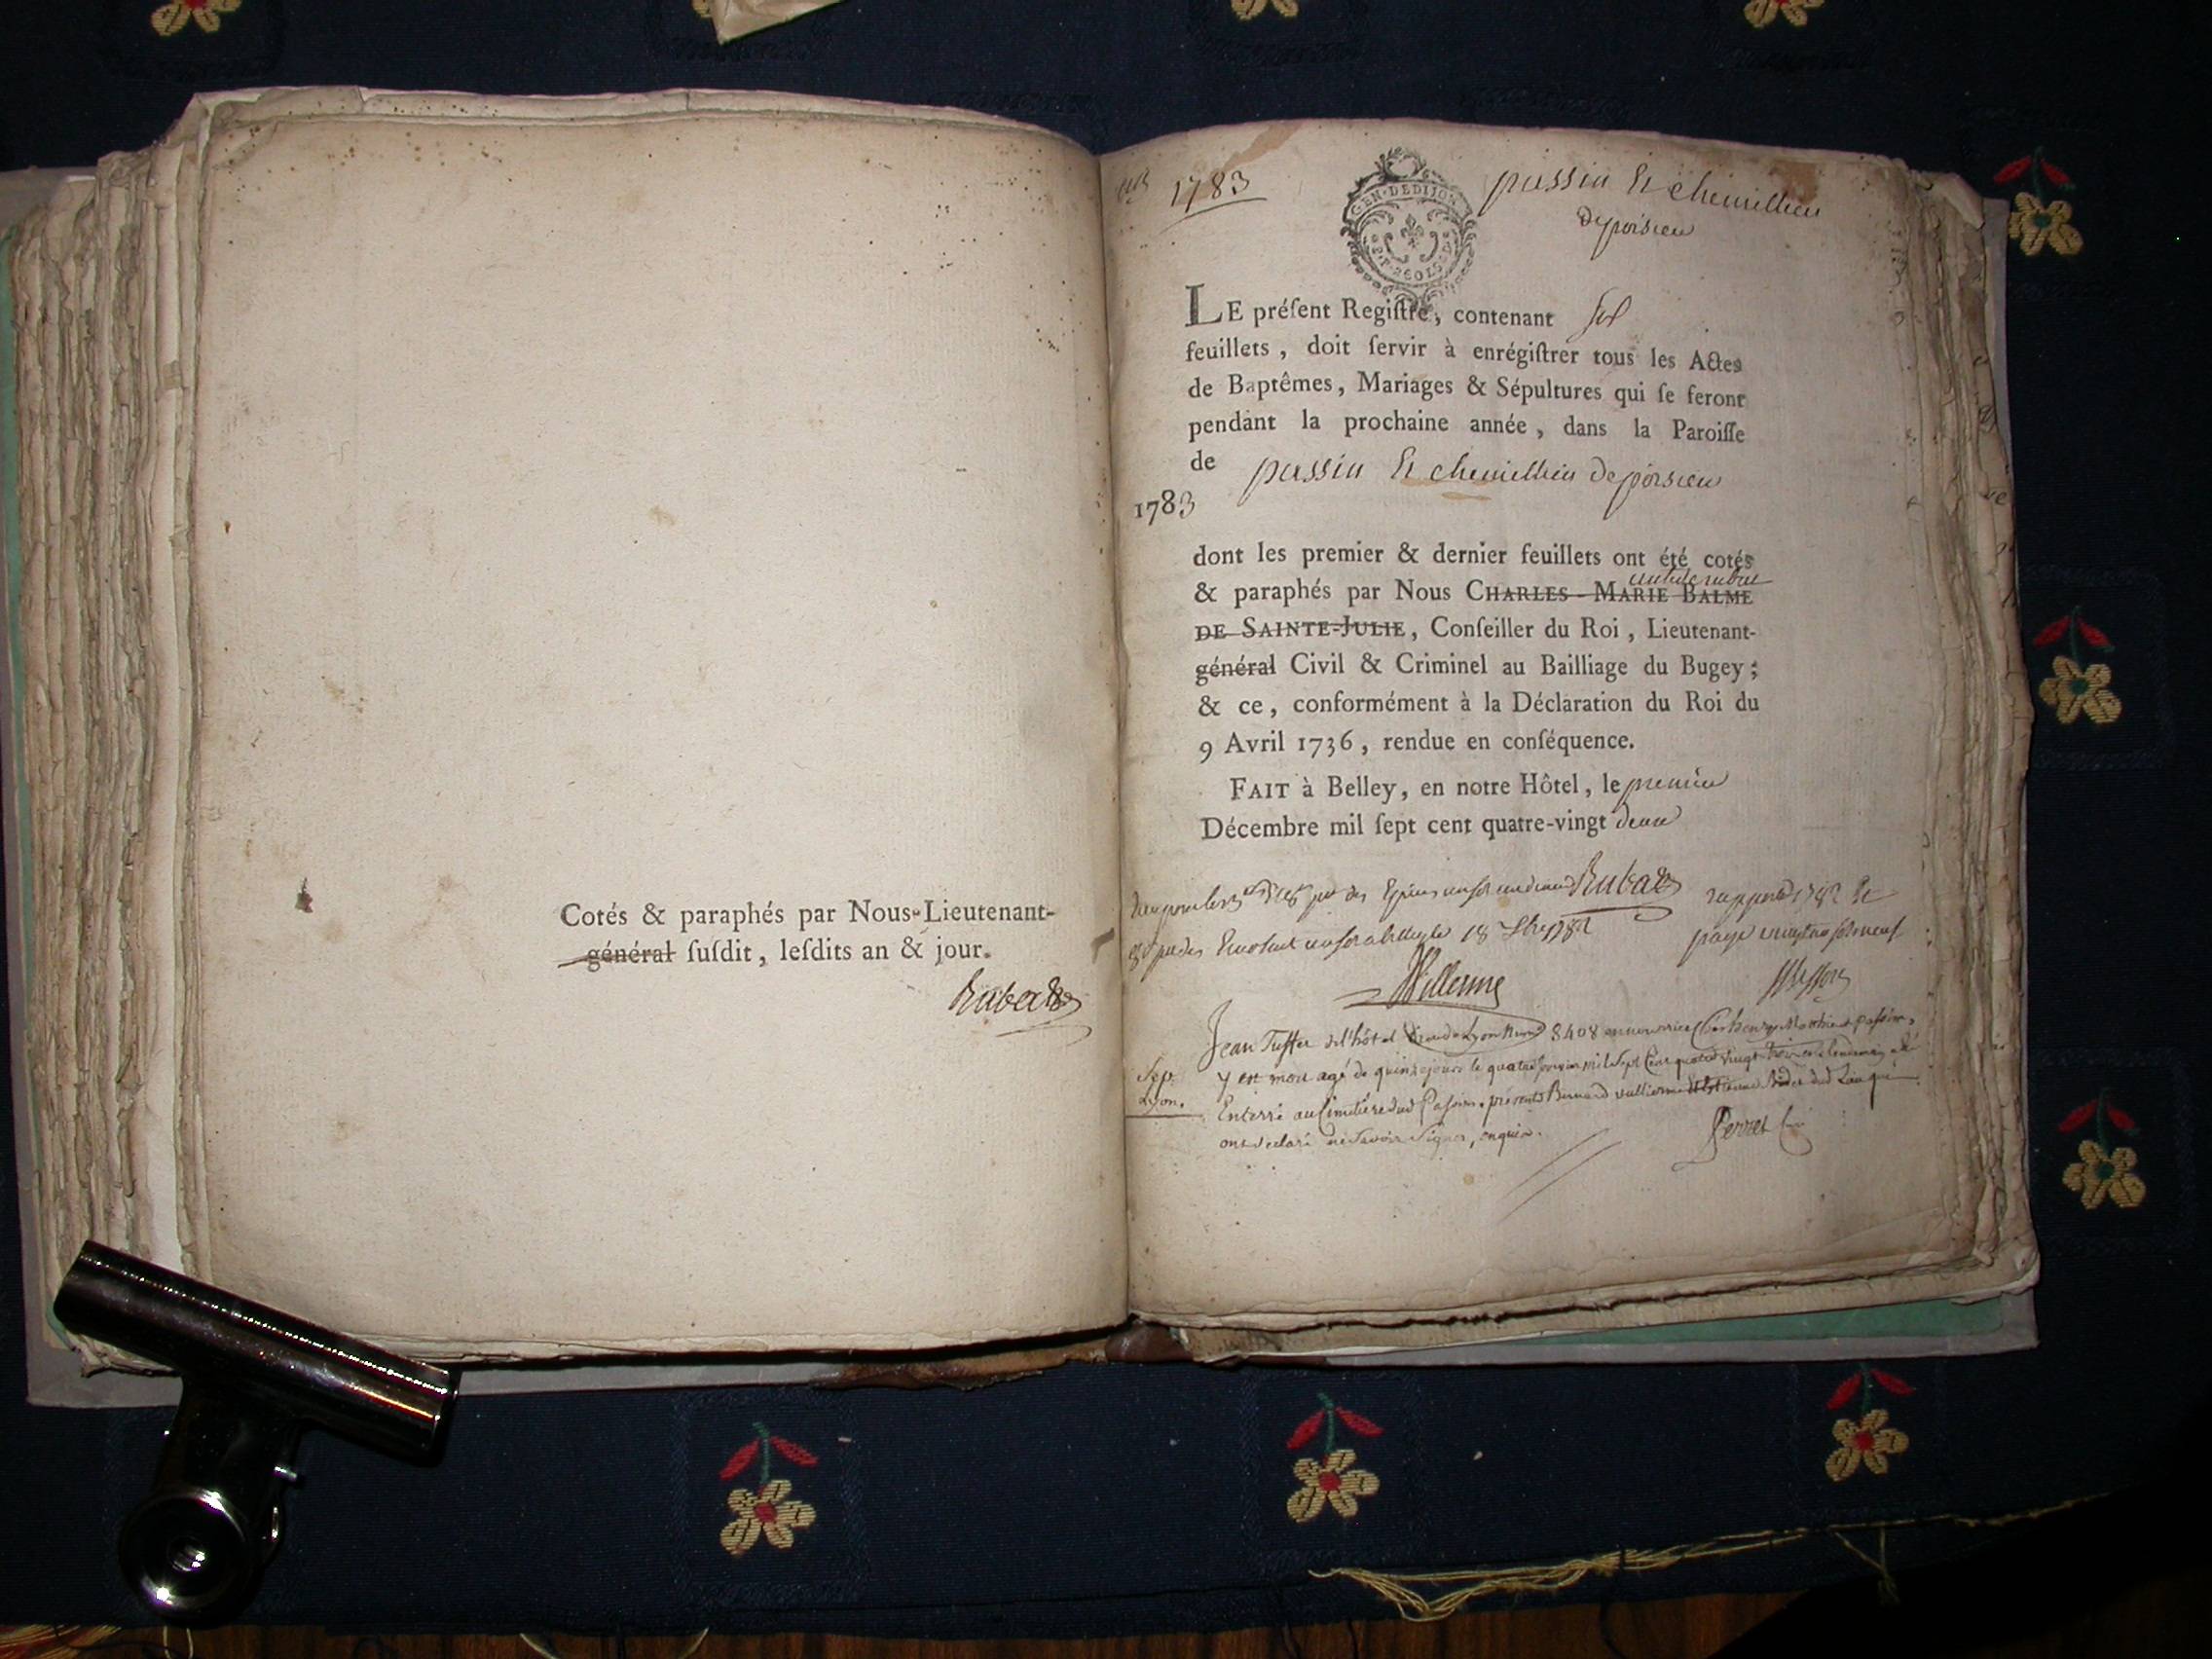 Cotés & paraphés par Nous-Lieutenant-
général ſuſdit, leſdits an & jour.
Rubat
1783
GEN·DEDIJON
passin Et chemillieu
de poisieu
LE préſent Regiſtre, contenant six
feuillets, doit ſervir à enrégiſtrer tous les Actes
de Baptêmes, Mariages & Sépultures qui ſe feront
pendant la prochaine année, dans la Paroiſſe
de passin Et chemillieu de poisieu
1783
dont les premier & dernier feuillets ont été cotés
& paraphés par Nous CHARLES-MARIE BALME
DE SAINTE-JULIE, Conſeiller du Roi, Lieutenant-
général Civil & Criminel au Bailliage du Bugey;
& ce, conformément à la Déclaration du Roi du
9 Avril 1736, rendue en conſéquence.
FAIT à Belley, en notre Hôtel, le premier
Décembre mil ſept cent quatre-vingt deux
Rubat
18 1782
Jean Tuffer de l'hôtel Dieu de Lyon Numº 8408 en nourrice Chez Mathieu passin,
y est mort agé de quinze jours le quatre janvier mil Sept Cent quatre vingt trois et le lendemain a été
Sep.
Lyon.
Enterré au Cimetière dud Passin. présents Bernard vullierme dud Lieu qui
ont declaré ne Savoir Signer, enquis.
Perret